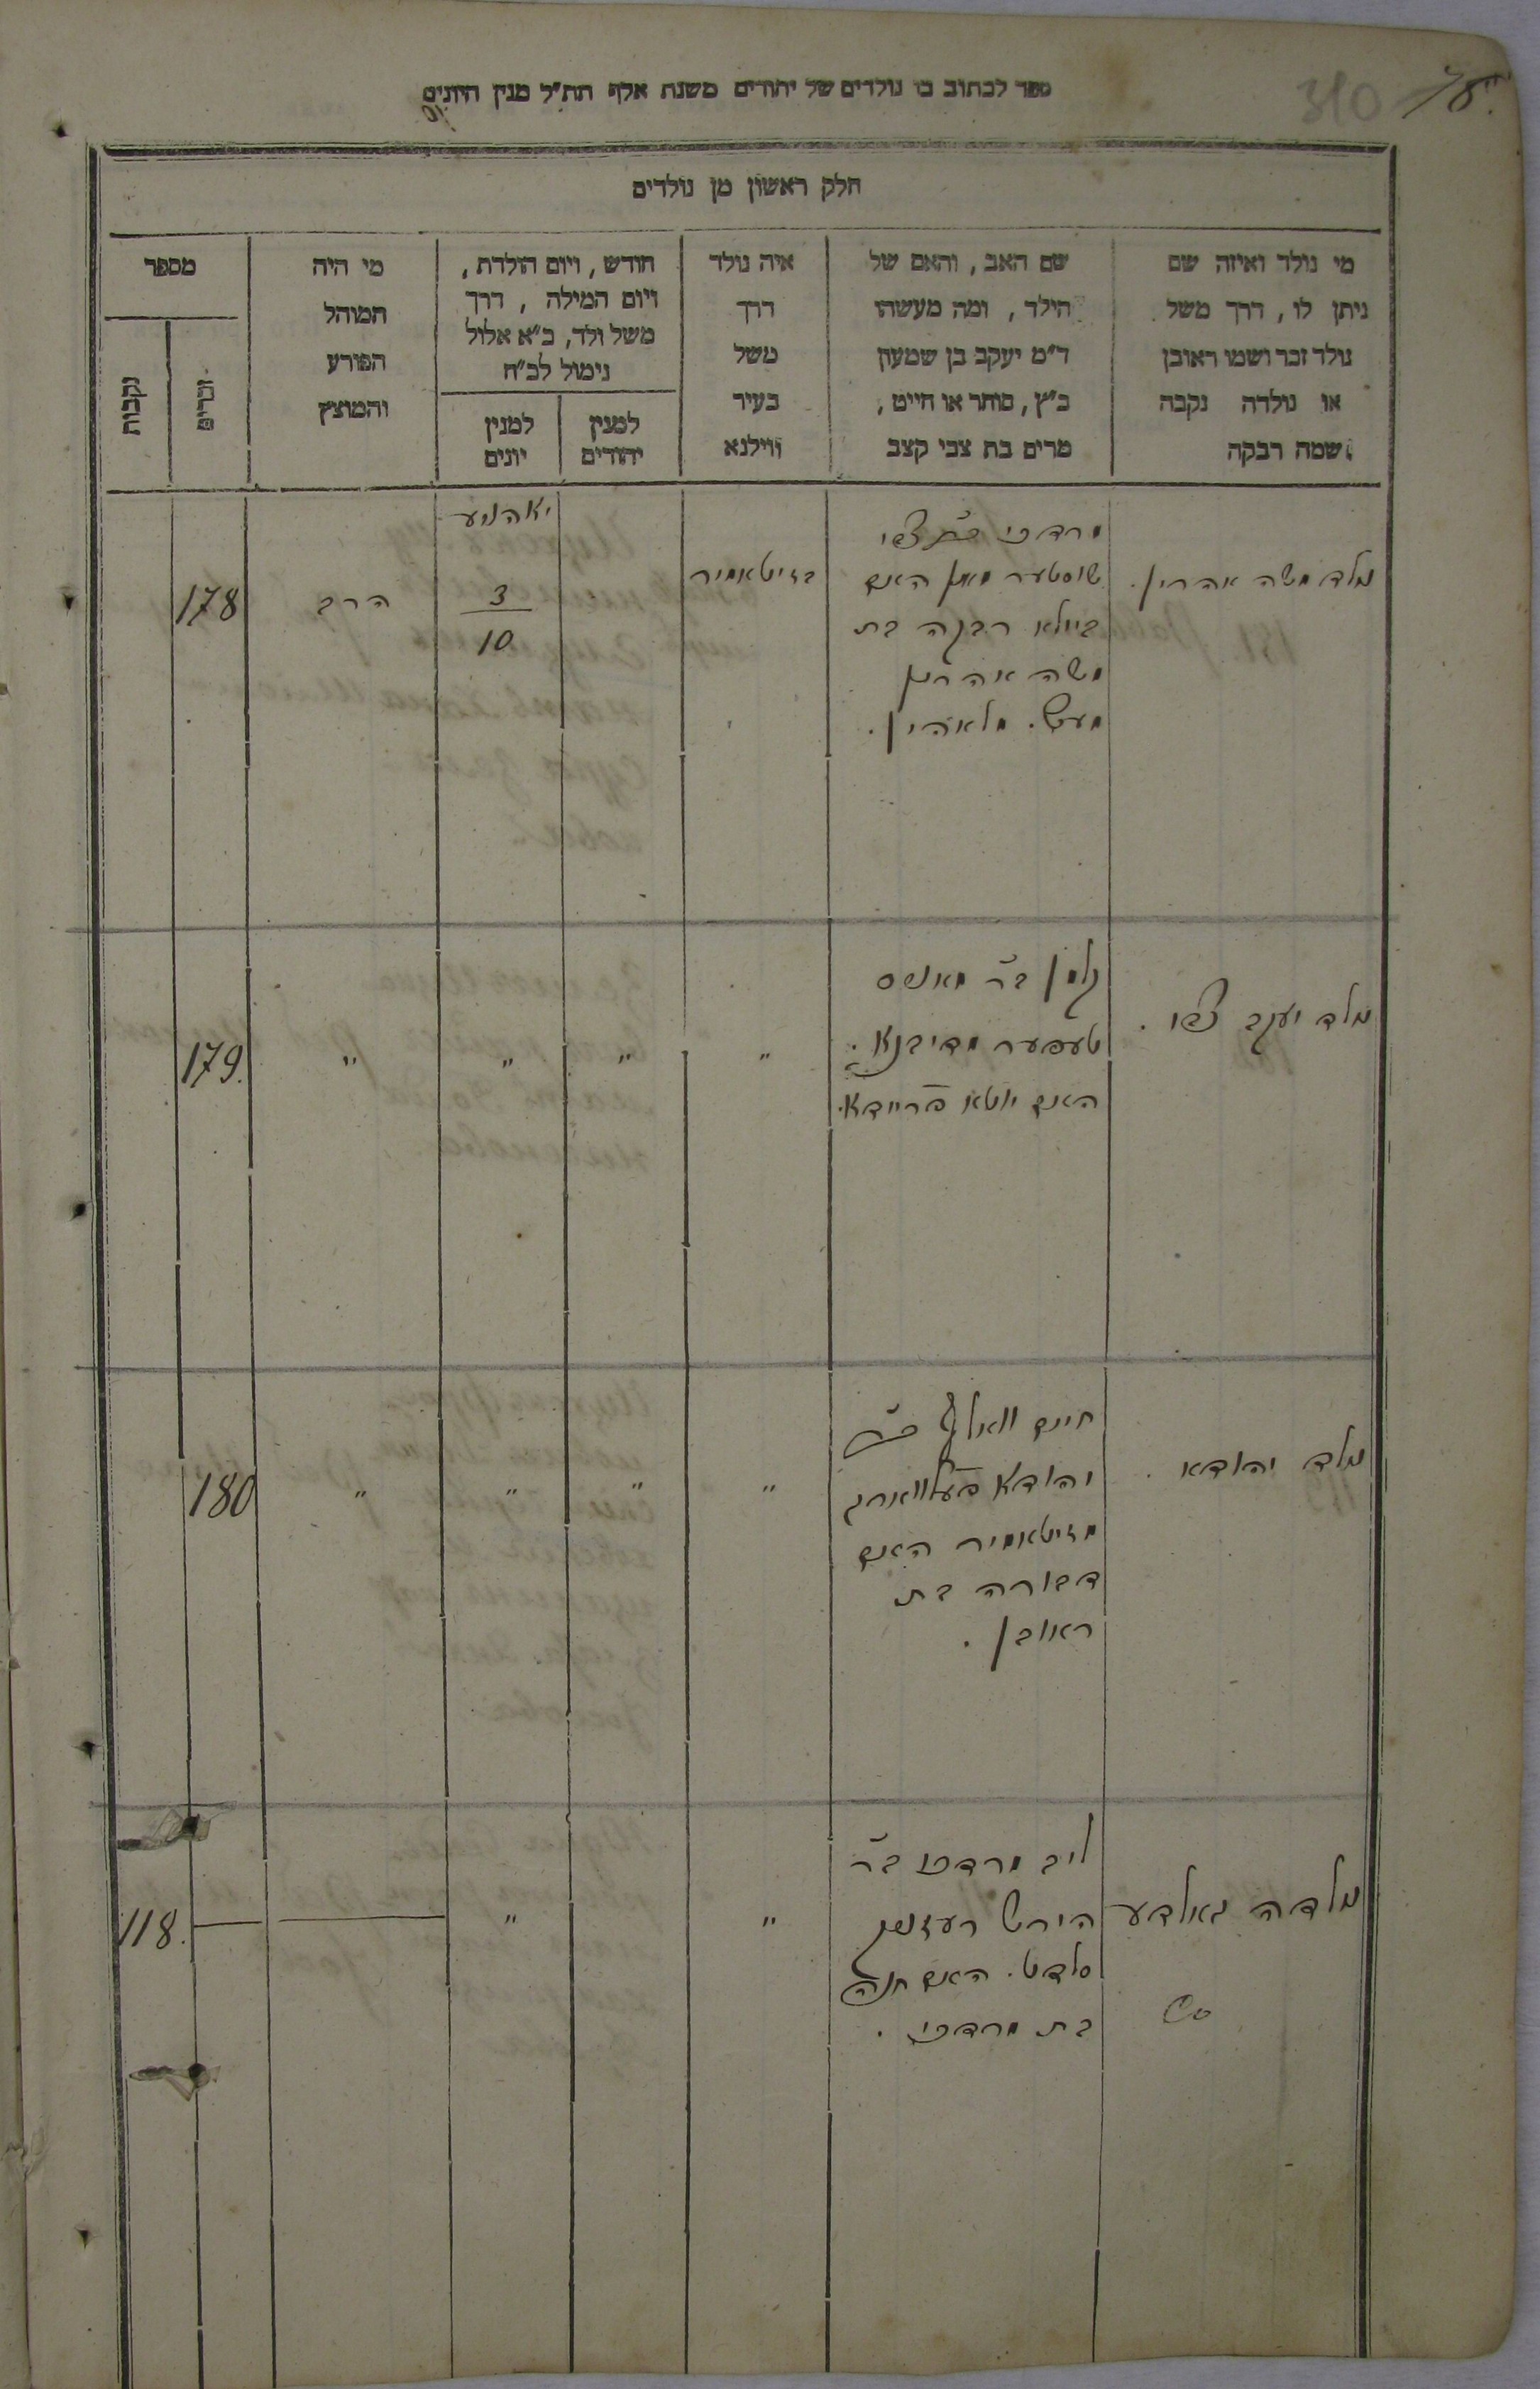 310
ספר לכתוב בו נולדים של יהודים משנת אלף תת״ל מנין היונים
חלק ראשון מן נולדים
מי נולד ואיזה שם
ניתן לו, דרך משל
נולד זכר ושמו ראובן
או נולדה נקבה
שמה רבקה
שם האב, והאם של
הילד, ומה מעשהו
ד״מ יעקב בן שמעון
כ״ץ, סוחר או חייט,
מרים בת צבי קצב
איה נולד
דרך
משל
בעיר
ווילנא
חודש, ויום הולדת,
ויום המילה, דרך
משל ולד, כ״א אלול
נימול לכ״ח
למנין
יהודים
למנין
יונים
מי היה
המוהל
הפורע
והמוצץ
מספר
זכרים
נקבות
נולד משה אהרין.
מרדכי צבי
שוסטער האם
ביילא רבקה בת
משה אהרן
בזיטאמיר
3
10
הרב
178
נולד יעקב צבי.
זלמן ב״ר מאנוס
טעפער
האם יוטא פריידא.
"
"
"
"
179.
נולד יהודא.
חיים וואלף
יהודא
מזיטאמיר האם
דבורה בת
ראובן.
"
"
"
"
180
נולדה גאלדע
ליב מרדכי ב״ר
הירש
סלדט. האם חנה
בת מרדכי.
"
"
118.